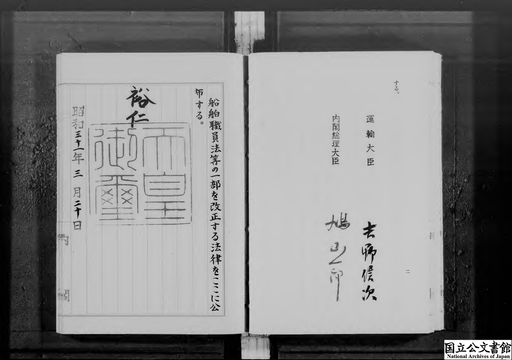 する。
運輸大臣
吉野信次
内閣総理大臣
鳩山一郎
二
船舶職員法等の一部を改正する法律をここに公
布する。
裕仁
天皇
御璽
昭和三十一年三月二十日
国立公文書館
National Archives of Japan